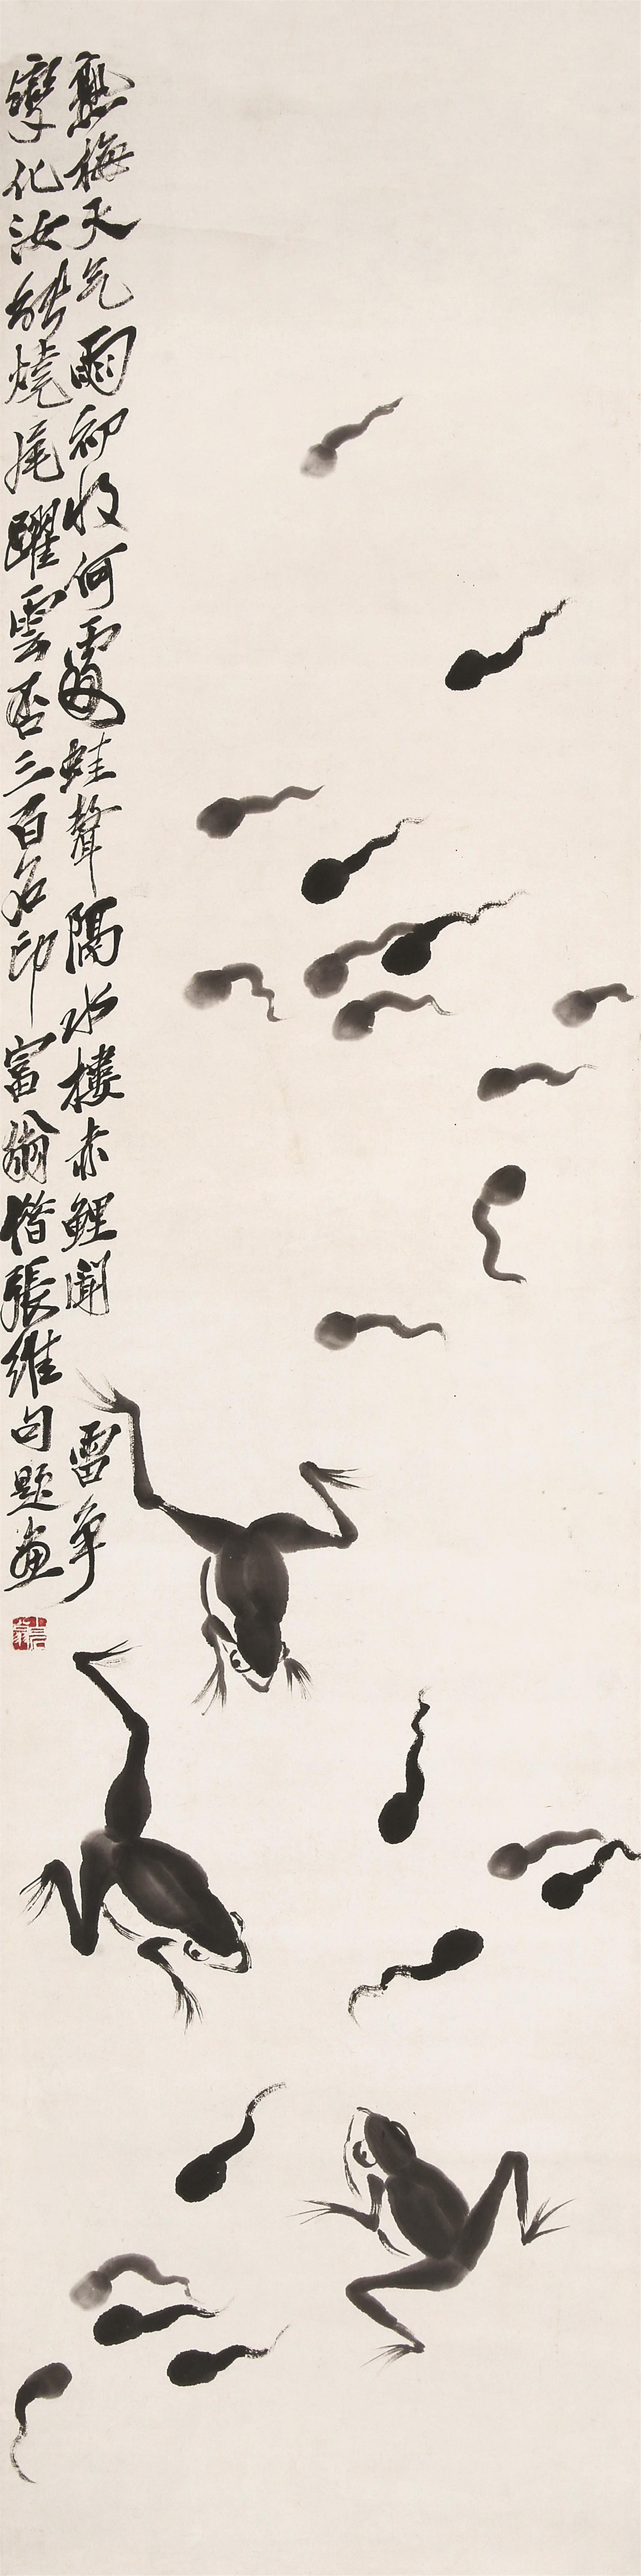 熟梅天气雨初收何處蛙聲隔水樓赤鯉聞雷爭
變化汝能燒尾躍雲否三百石印富翁借張維句題畫